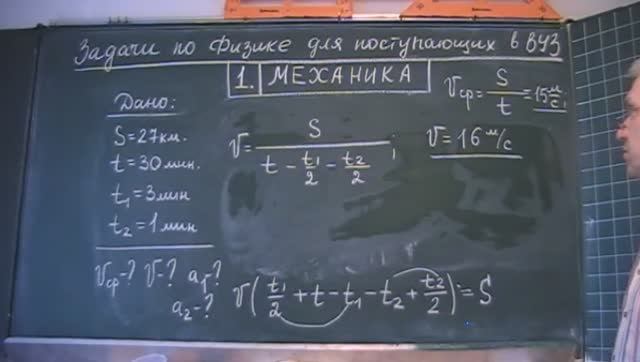 Задачи по Физике для поступающих в ВУЗ
1. МЕХАНИКА
Дано:
S=27км.
t=30мин.
t₁=3мин
t₂=1мин
Vср-? V-? a₁-?
a₂-?
V = S / (t - t₁/2 - t₂/2);
Vср = S/t = 15 м/с;
V=16 м/с
V(t₁/2 + t - t₁ - t₂ + t₂/2) = S